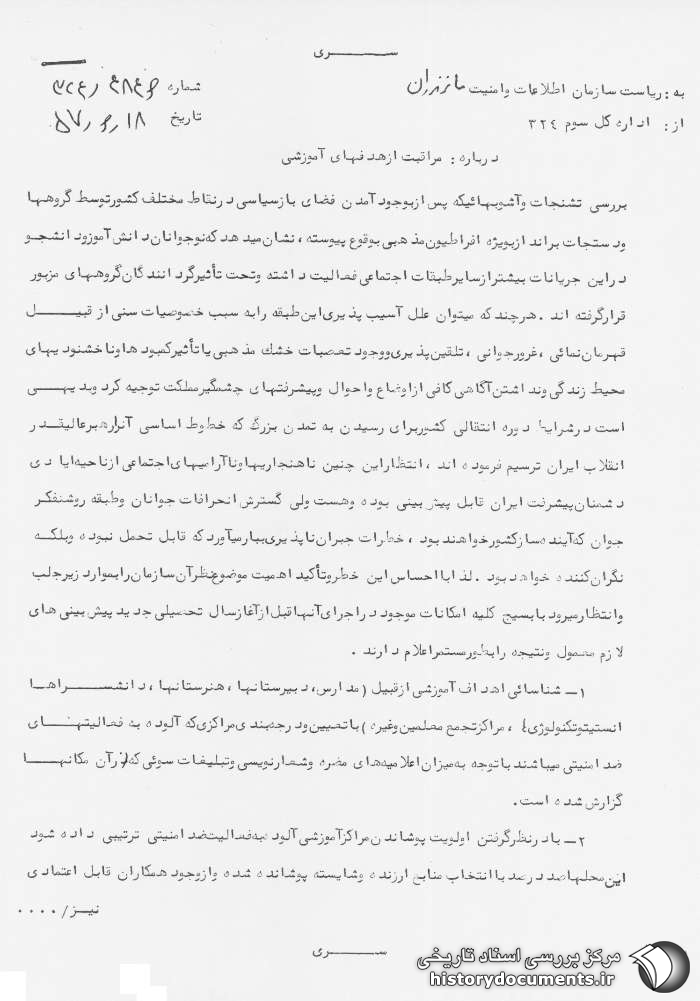 ســـــری
به : ریاست سازمان اطلاعات وامنیت مازندران
شماره
از : اداره کل سوم ۳۲٤
تاریخ ۵۷٫۶٫۱۸
درباره : مراقبت ازهدفهای آموزشی
بررسی تشنجات وآشوبهائیکه پس ازبوجود آمدن فضای بازسیاسی درنقاط مختلف کشورتوسط گروهها
ودستجات برانداز بویژه افراطیون مذهبی بوقوع پیوسته ، نشان میدهد که نوجوانان دانش آموزود انشجو
دراین جریانات بیشترازسایرطبقات اجتماعی فعالیت داشته وتحت تأثیرگردانندگان گروههای مزبور
قرارگرفته اند . هرچند که میتوان علل آسیب پذیری این طبقه رابه سبب خصوصیات سنی از قبیـــل
قهرمان نمائی ، غرورجوانی ، تلقین پذیری ووجود تعصبات خشك مذهبی یا تأثیرکمبودهاونا خشنودیهای
محیط زندگی وند اشتن آگاهی کافی ازاوضاع واحوال وپیشرفتهای چشمگیرمملکت توجیه کرد وبدیهـــی
است درشرایط دوره انتقالی کشوربرای رسیدن به تمدن بزرگ که خطوط اساسی آنرارهبرعالیقدر
انقلاب ایران ترسیم فرموده اند ، انتظاراین چنین ناهنجاریهاوناآرامیهای اجتماعی ازناحیه ایادی
دشمنان پیشرفت ایران قابل پیش بینی بوده وهست ولی گسترش انحرافات جوانان وطبقه روشنفکر
جوان که آینده سازکشورخواهند بود ، خطرات جبران ناپذیری ببارمیآورد که قابل تحمل نبوده وبلکــه
نگران کننده خواهد بود . لذا با احساس این خطروتأکید اهمیت موضوع نظرآن سازمان رابموارد زیرجلب
وانتظارمیرود بابسیج کلیه امکانات موجود دراجرای آنها قبل ازآغازسال تحصیلی جدید پیش بینی های
لازم معمول ونتیجه رابطورمستمراعلام دارند .
۱ـ شناسائی اهداف آموزشی ازقبیل (مدارس، دبیرستانها ، هنرستانها ، دانشــــراهــا
انستیتوتکنولوژی ، مراکزتجمع معلمین وغیره ) باتعیین ودرجه بندی مراکزی که آلوده به فعالیتهــای
ضد امنیتی میباشند باتوجه به میزان اعلامیه های مضره وشعارنویسی وتبلیغات سوئی که از آن مکانهـــا
گزارش شده است .
۲ـ بادرنظرگرفتن اولویت پوشاندن مراکزآموزشی آلوده به فعالیت ضد امنیتی ترتیبی داده شود
این محلهاصددرصد با انتخاب منابع ارزنده وشایسته پوشانده شده وازوجود همکاران قابل اعتمادی
نیــز/ ....
ســـــری
مرکز بررسی اسناد تاریخی
historydocuments.ir